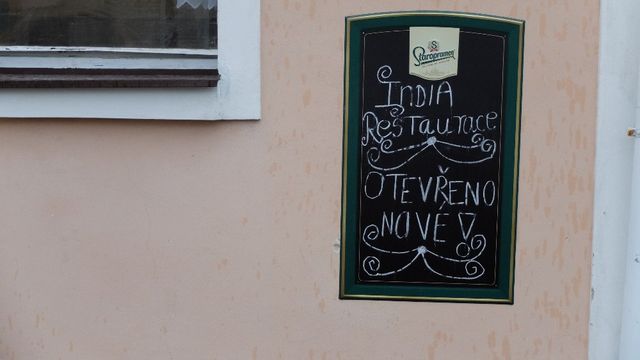 Staropramen
INDIA
RESTAURACE
OTEVŘENO
NOVÉ!